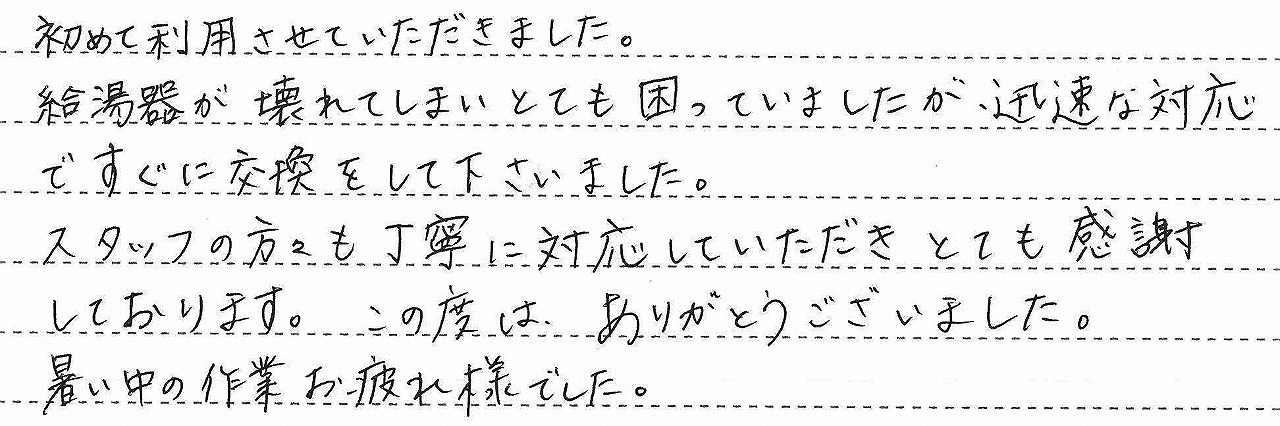 初めて利用させていただきました。
給湯器が壊れてしまいとても困っていましたが、迅速な対応
ですぐに交換をして下さいました。
スタッフの方々も丁寧に対応していただきとても感謝
しております。この度は、ありがとうございました。
暑い中の作業お疲れ様でした。